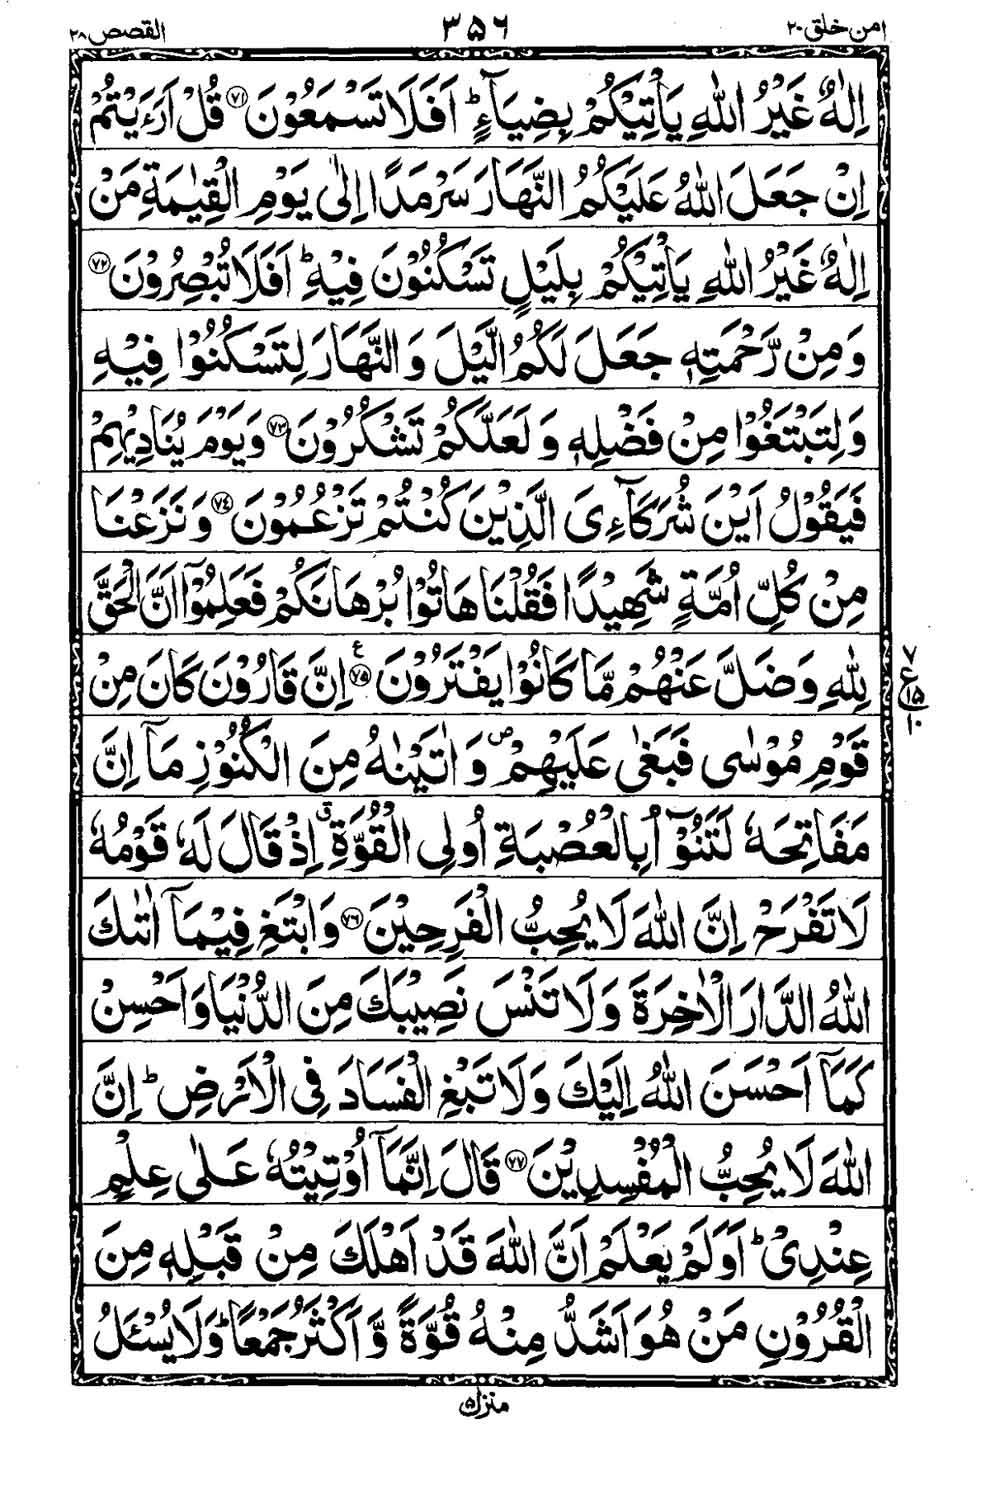 امن خلق ٢٠ ٣٥٦ القصص ٢٨
اِلٰهٌ غَيْرُ اللّٰهِ يَاْتِيْكُمْ بِضِيَآءٍ ؕ اَفَلَا تَسْمَعُوْنَ ﴿٧١﴾ قُلْ اَرَءَيْتُمْ
اِنْ جَعَلَ اللّٰهُ عَلَيْكُمُ النَّهَارَ سَرْمَدًا اِلٰى يَوْمِ الْقِيٰمَةِ مَنْ
اِلٰهٌ غَيْرُ اللّٰهِ يَاْتِيْكُمْ بِلَيْلٍ تَسْكُنُوْنَ فِيْهِ ؕ اَفَلَا تُبْصِرُوْنَ ﴿٧٢﴾
وَ مِنْ رَّحْمَتِهٖ جَعَلَ لَكُمُ الَّيْلَ وَ النَّهَارَ لِتَسْكُنُوْا فِيْهِ
وَ لِتَبْتَغُوْا مِنْ فَضْلِهٖ وَ لَعَلَّكُمْ تَشْكُرُوْنَ ﴿٧٣﴾ وَ يَوْمَ يُنَادِيْهِمْ
فَيَقُوْلُ اَيْنَ شُرَكَآءِىَ الَّذِيْنَ كُنْتُمْ تَزْعُمُوْنَ ﴿٧٤﴾ وَ نَزَعْنَا
مِنْ كُلِّ اُمَّةٍ شَهِيْدًا فَقُلْنَا هَاتُوْا بُرْهَانَكُمْ فَعَلِمُوْۤا اَنَّ الْحَقَّ
لِلّٰهِ وَ ضَلَّ عَنْهُمْ مَّا كَانُوْا يَفْتَرُوْنَ ﴿٧٥﴾ ع اِنَّ قَارُوْنَ كَانَ مِنْ
٧ ع ١٥ ١٠
قَوْمِ مُوْسٰى فَبَغٰى عَلَيْهِمْ ص وَ اٰتَيْنٰهُ مِنَ الْكُنُوْزِ مَاۤ اِنَّ
مَفَاتِحَهٗ لَتَنُوْٓاُ بِالْعُصْبَةِ اُولِى الْقُوَّةِ ق اِذْ قَالَ لَهٗ قَوْمُهٗ
لَا تَفْرَحْ اِنَّ اللّٰهَ لَا يُحِبُّ الْفَرِحِيْنَ ﴿٧٦﴾ وَ ابْتَغِ فِيْمَاۤ اٰتٰىكَ
اللّٰهُ الدَّارَ الْاٰخِرَةَ وَ لَا تَنْسَ نَصِيْبَكَ مِنَ الدُّنْيَا وَ اَحْسِنْ
كَمَاۤ اَحْسَنَ اللّٰهُ اِلَيْكَ وَ لَا تَبْغِ الْفَسَادَ فِى الْاَرْضِ ؕ اِنَّ
اللّٰهَ لَا يُحِبُّ الْمُفْسِدِيْنَ ﴿٧٧﴾ قَالَ اِنَّمَاۤ اُوْتِيْتُهٗ عَلٰى عِلْمٍ
عِنْدِىْ ؕ اَوَ لَمْ يَعْلَمْ اَنَّ اللّٰهَ قَدْ اَهْلَكَ مِنْ قَبْلِهٖ مِنَ
الْقُرُوْنِ مَنْ هُوَ اَشَدُّ مِنْهُ قُوَّةً وَّ اَكْثَرُ جَمْعًا ؕ وَ لَا يُسْئَلُ
منزل ٥